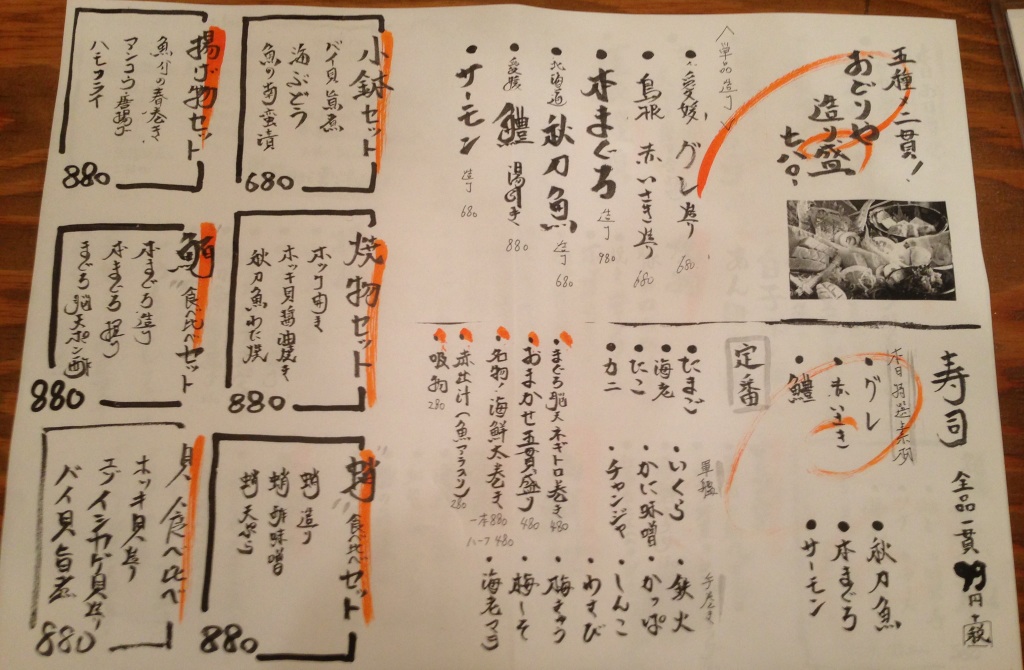 五種×二貫!
おどりや
造り盛
七八〇
〈単品造り〉
・愛媛 グレ造り 680
・鳥取 赤いさき造り 680
・本まぐろ 造り 980
・北海道 秋刀魚 造り 680
・愛媛 鱧 湯引き 880
・サーモン 造り 680
小鉢セット
バイ貝旨煮
海ぶどう
魚の南蛮漬
680
揚げ物セット
魚介の春巻き
アンコウ唐揚げ
ハモフライ
880
焼物セット
ホッケ開き
ホッキ貝醤油焼き
秋刀魚わた焼
880
鮪食べ比べセット
本まぐろ造り
本まぐろ握り
まぐろ脳天ポン酢
880
蛸食べ比べセット
蛸造り
蛸酢味噌
蛸天ぷら
880
貝食べ比べ
ホッキ貝造り
エゾイシカゲ貝造り
バイ貝旨煮
880
寿司 全品一貫 99円+税
・グレ
・赤いさき
・鱧
・秋刀魚
・本まぐろ
・サーモン
定番
・たまご
・海老
・たこ
・カニ
軍艦
・いくら
・かに味噌
・チャンジャ
手巻き
・鉄火
・かっぱ
・しんこ
・わさび
・梅きゅう
・梅しそ
・海老マヨ
・まぐろ脳天ネギトロ巻き 480
・おまかせ五貫盛り 480
・名物!海鮮太巻き 一本880 ハーフ480
・赤出汁(魚アラ入り) 280
・吸物 280